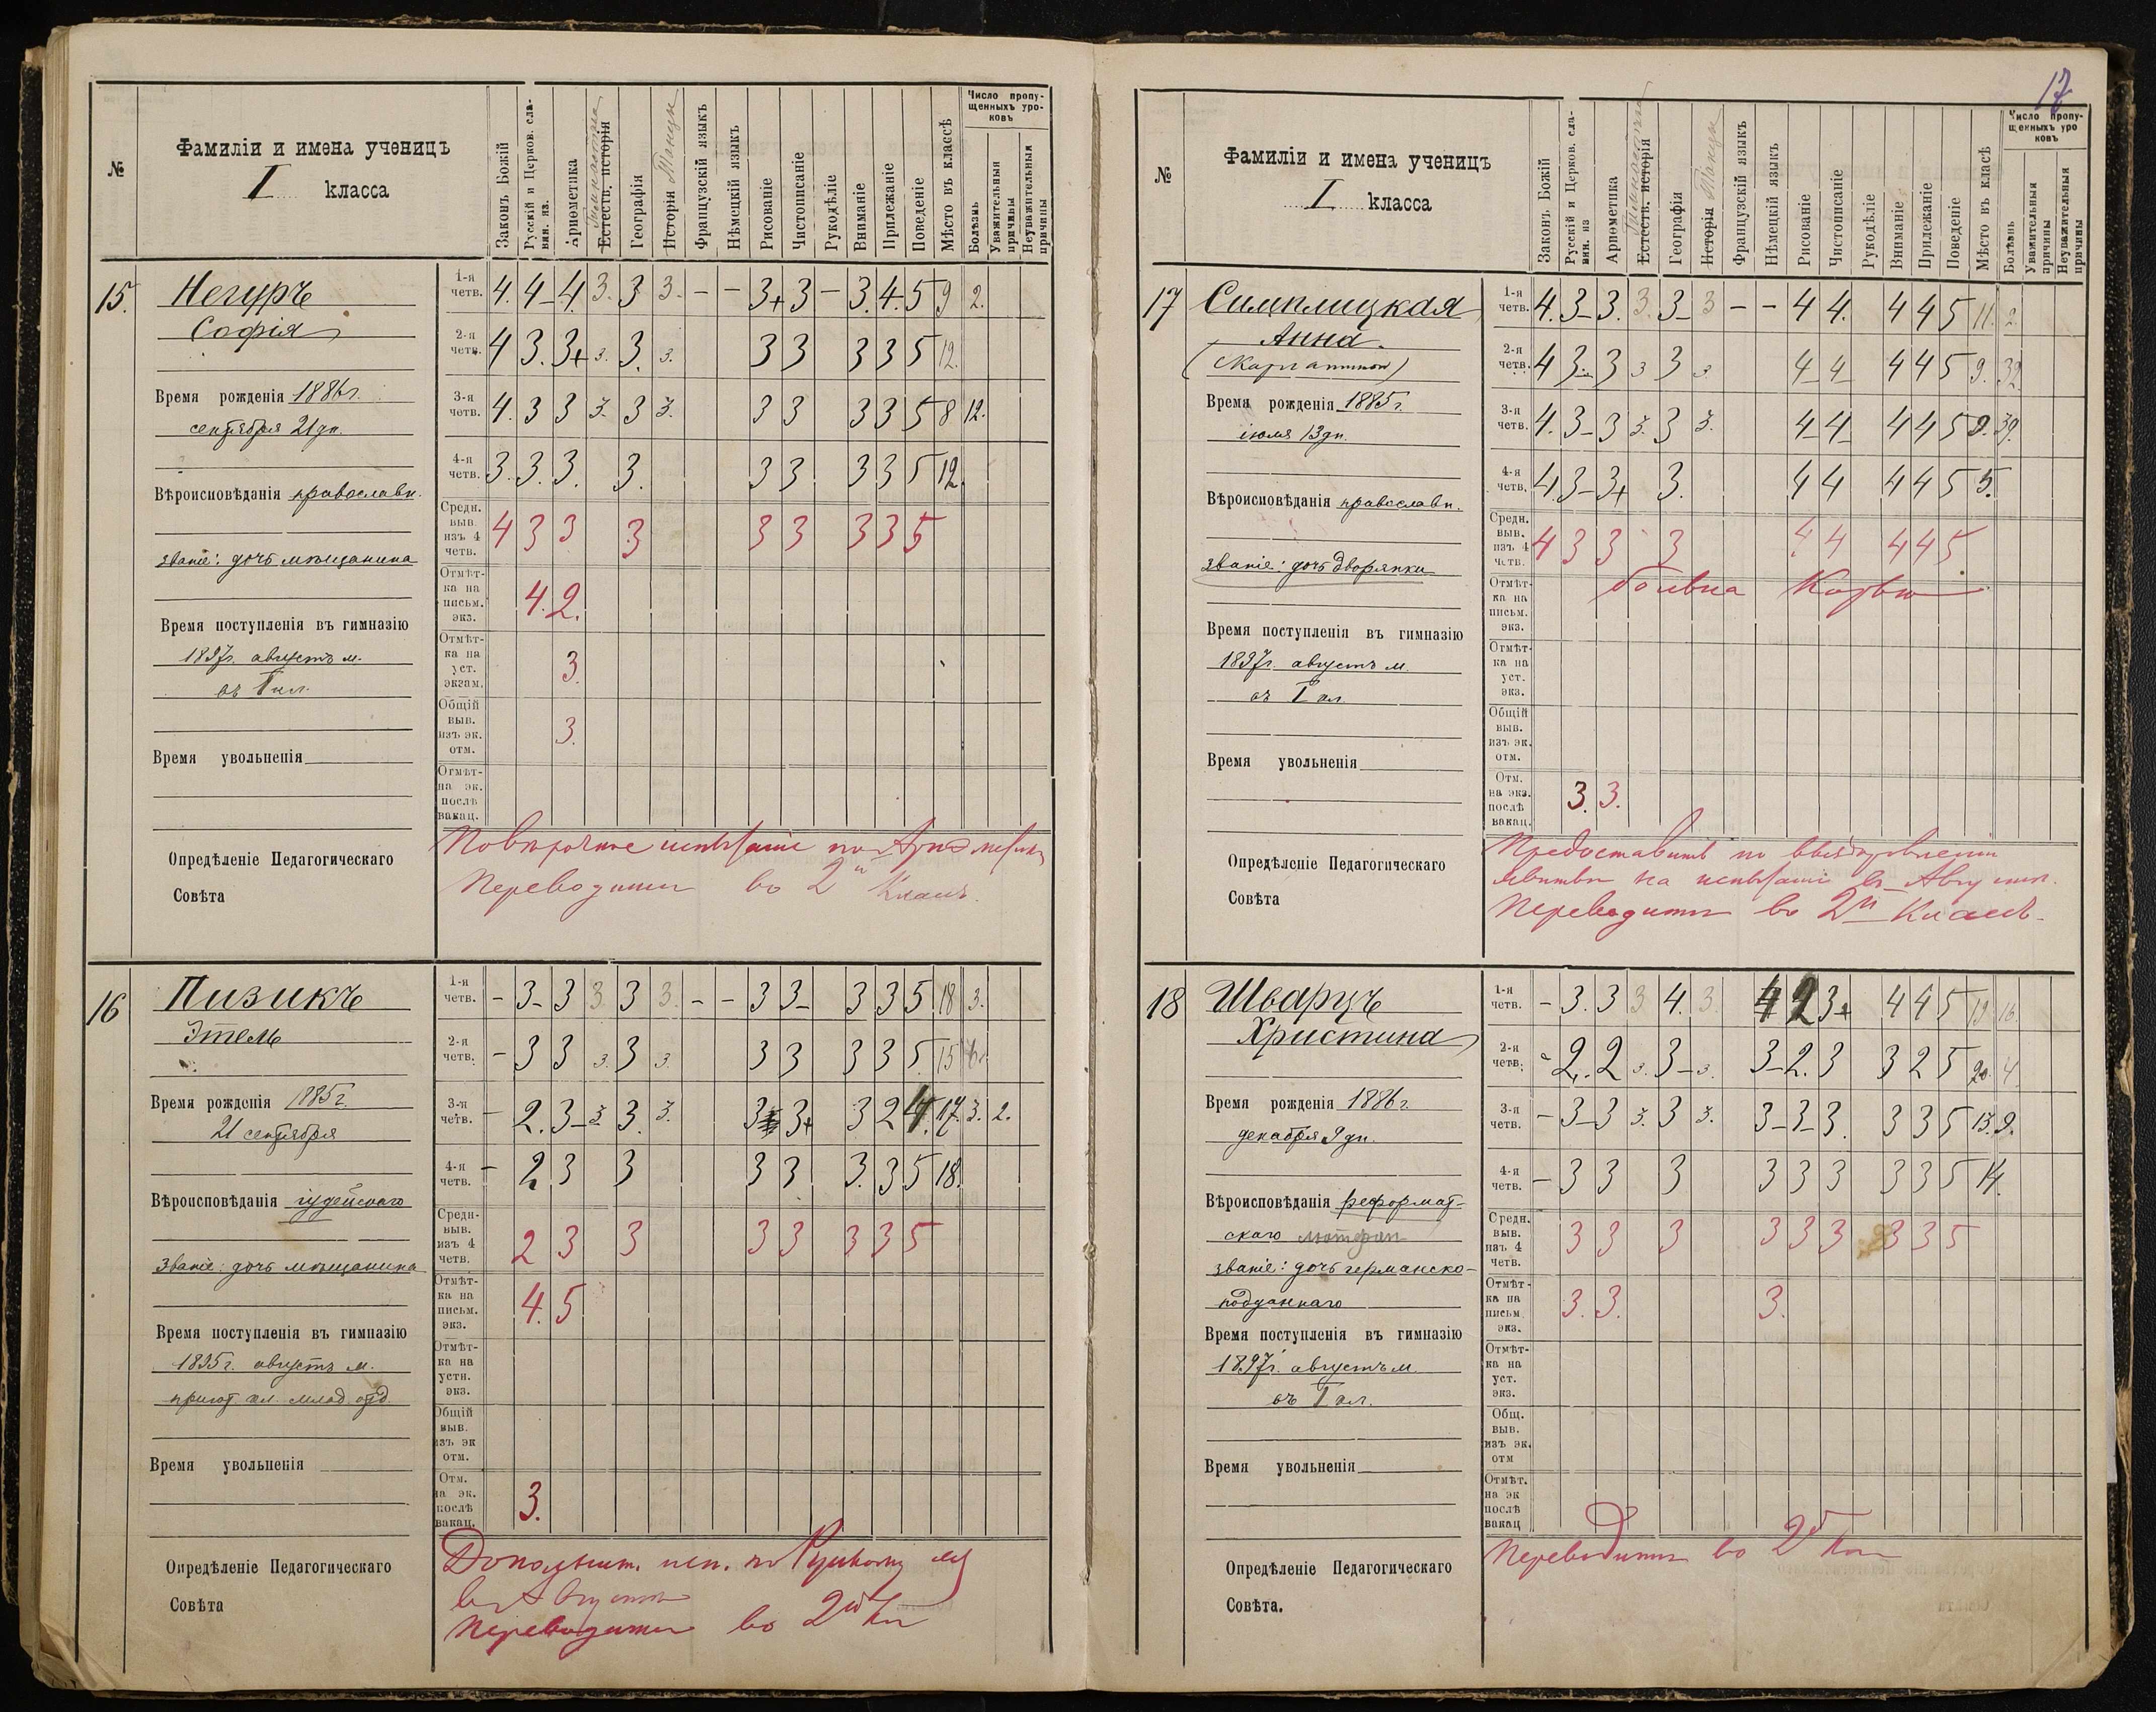 №
Фамиліи и имена ученицъ
I класса
Законъ Божій
Русскій и Церков. сла-
вян. яз.
Ариѳметика
Гимнастика
Естеств. исторія
Географія
Исторія Танцы
Французскій языкъ
Нѣмецкій языкъ
Рисованіе
Чистописаніе
Рукодѣліе
Вниманіе
Прилежаніе
Поведеніе
Мѣсто въ классѣ
Число пропу-
щенныхъ уро-
ковъ
Болѣзнь
Уважительныя
причины
Неуважительныя
причины
15. Негуръ
Софія
Время рожденія 1886 г.
сентября 21 дн.
Вѣроисповѣданія православн.
званіе: дочь мѣщанина
Время поступленія въ гимназію
1897 г. августъ м.
въ I кл.
Время увольненія
1-я
четв. 4. 4- 4. 3. 3 3. - - 3+ 3 - 3. 4. 5 9 2.
2-я
четв. 4 3. 3+ 3. 3. 3. 3 3 3 3 5 12.
3-я
четв. 4. 3 3 3. 3 3. 3 3 3 3 5 8 12.
4-я
четв. 3. 3. 3. 3. 3 3 3 3 5 12.
Средн.
выв.
изъ 4
четв. 4 3 3 3 3 3 3 3 5
Отмѣт-
ка на
письм.
экз. 4. 2.
Отмѣт-
ка на
уст.
экзам. 3.
Общій
выв.
изъ эк.
отм. 3.
Отмѣт-
на эк.
послѣ
вакац.
Опредѣленіе Педагогическаго
Совѣта
Повѣрочное испытаніе по Ариѳметикѣ
Переводится во 2й Классъ.
16 Пизикъ
Этель
Время рожденія 1885 г.
21 сентября
Вѣроисповѣданія іудейскаго
званіе: дочь мѣщанина
Время поступленія въ гимназію
1895 г. августъ м.
пригот. кл. млад. отд.
Время увольненія
1-я
четв. - 3- 3 3 3 3. - - 3 3- 3 3 5 18 3.
2-я
четв. - 3 3 3. 3 3. 3 3 3 3 5. 15
3-я
четв. - 2. 3- 3 3. 3. 3 3+ 3 2 4. 17. 3. 2.
4-я
четв. - 2 3 3 3 3 3. 3 5 18.
Средн-
выв.
изъ 4
четв. 2 3 3 3 3 3 3 5
Отмѣт-
ка на
письм.
экз. 4. 5
Отмѣт-
ка на
устн.
экз.
Общій
выв.
изъ эк
отм.
Отм.
на эк.
послѣ
вакац. 3.
Опредѣленіе Педагогическаго
Совѣта
Дополнит. исп. по Русскому яз
въ Августѣ
Переводится во 2й кл
17
№
Фамиліи и имена ученицъ
I класса
Законъ Божій
Русскій и Церков. сла-
вян. яз
Ариѳметика
Гимнастика
Естеств. исторія
Географія
Исторія Танцы
Французскій языкъ
Нѣмецкій языкъ
Рисованіе
Чистописаніе
Рукодѣліе
Вниманіе
Прилежаніе
Поведеніе
Мѣсто въ класѣ
Число пропу-
щенныхъ уро
ковъ
Болѣзнь
Уважительныя
причины
Неуважительныя
причины
17 Симплицкая
Анна.
Время рожденія 1885 г.
іюля 13 дн.
Вѣроисповѣданія православн.
званіе: дочь дворянки
Время поступленія въ гимназію
1897 г. августъ м.
въ I кл.
Время увольненія
1-я
четв. 4. 3- 3. 3. 3- 3 - - 4 4. 4 4 5 11. 2.
2-я
четв. 4 3- 3 3 3 3 4- 4- 4 4 5 9. 32
3-я
четв. 4. 3- 3 3. 3 3. 4- 4- 4 4 5 9. 39.
4-я
четв. 4. 3- 3+ 3. 4 4 4 4 5 5.
Средн.
выв.
изъ 4
четв. 4 3 3 3 4 4 4 4 5
Отмѣт-
ка на
письм.
экз.
больна Корью
Отмѣт-
ка на
уст.
экз.
Общій
выв.
изъ эк.
отм.
Отм.
на экз.
послѣ
вакац. 3. 3.
Опредѣленіе Педагогическаго
Совѣта
Предоставить по выздоровленіи
явиться на испытаніе въ Августѣ.
Переводится во 2й Классъ.
18 Шварцъ
Христина
Время рожденія 1886 г.
декабря 9 дн.
Вѣроисповѣданія реформат-
скаго лютеран
званіе: дочь германско-
подданнаго
Время поступленія въ гимназію
1897 г. августъ м.
въ I кл.
Время увольненія
1-я
четв. - 3. 3 3 4. 3. 4 2 3+ 4 4 5 19. 16.
2-я
четв. - 2. 2 3. 3- 3. 3- 2. 3 3 2 5 20. 4.
3-я
четв. - 3- 3 3. 3 3. 3- 3- 3. 3 3 5 13. 9.
4-я
четв. - 3 3 3 3 3 3 3 3 5 14.
Средн.
выв.
изъ 4
четв. 3 3 3 3 3 3 3 3 5
Отмѣт-
ка на
письм
экз. 3. 3. 3.
Отмѣт-
ка на
уст.
экз.
Общ.
выв.
изъ эк.
отм
Отмѣт.
на эк
послѣ
вакац
Опредѣленіе Педагогическаго
Совѣта.
Переводится во 2й кл